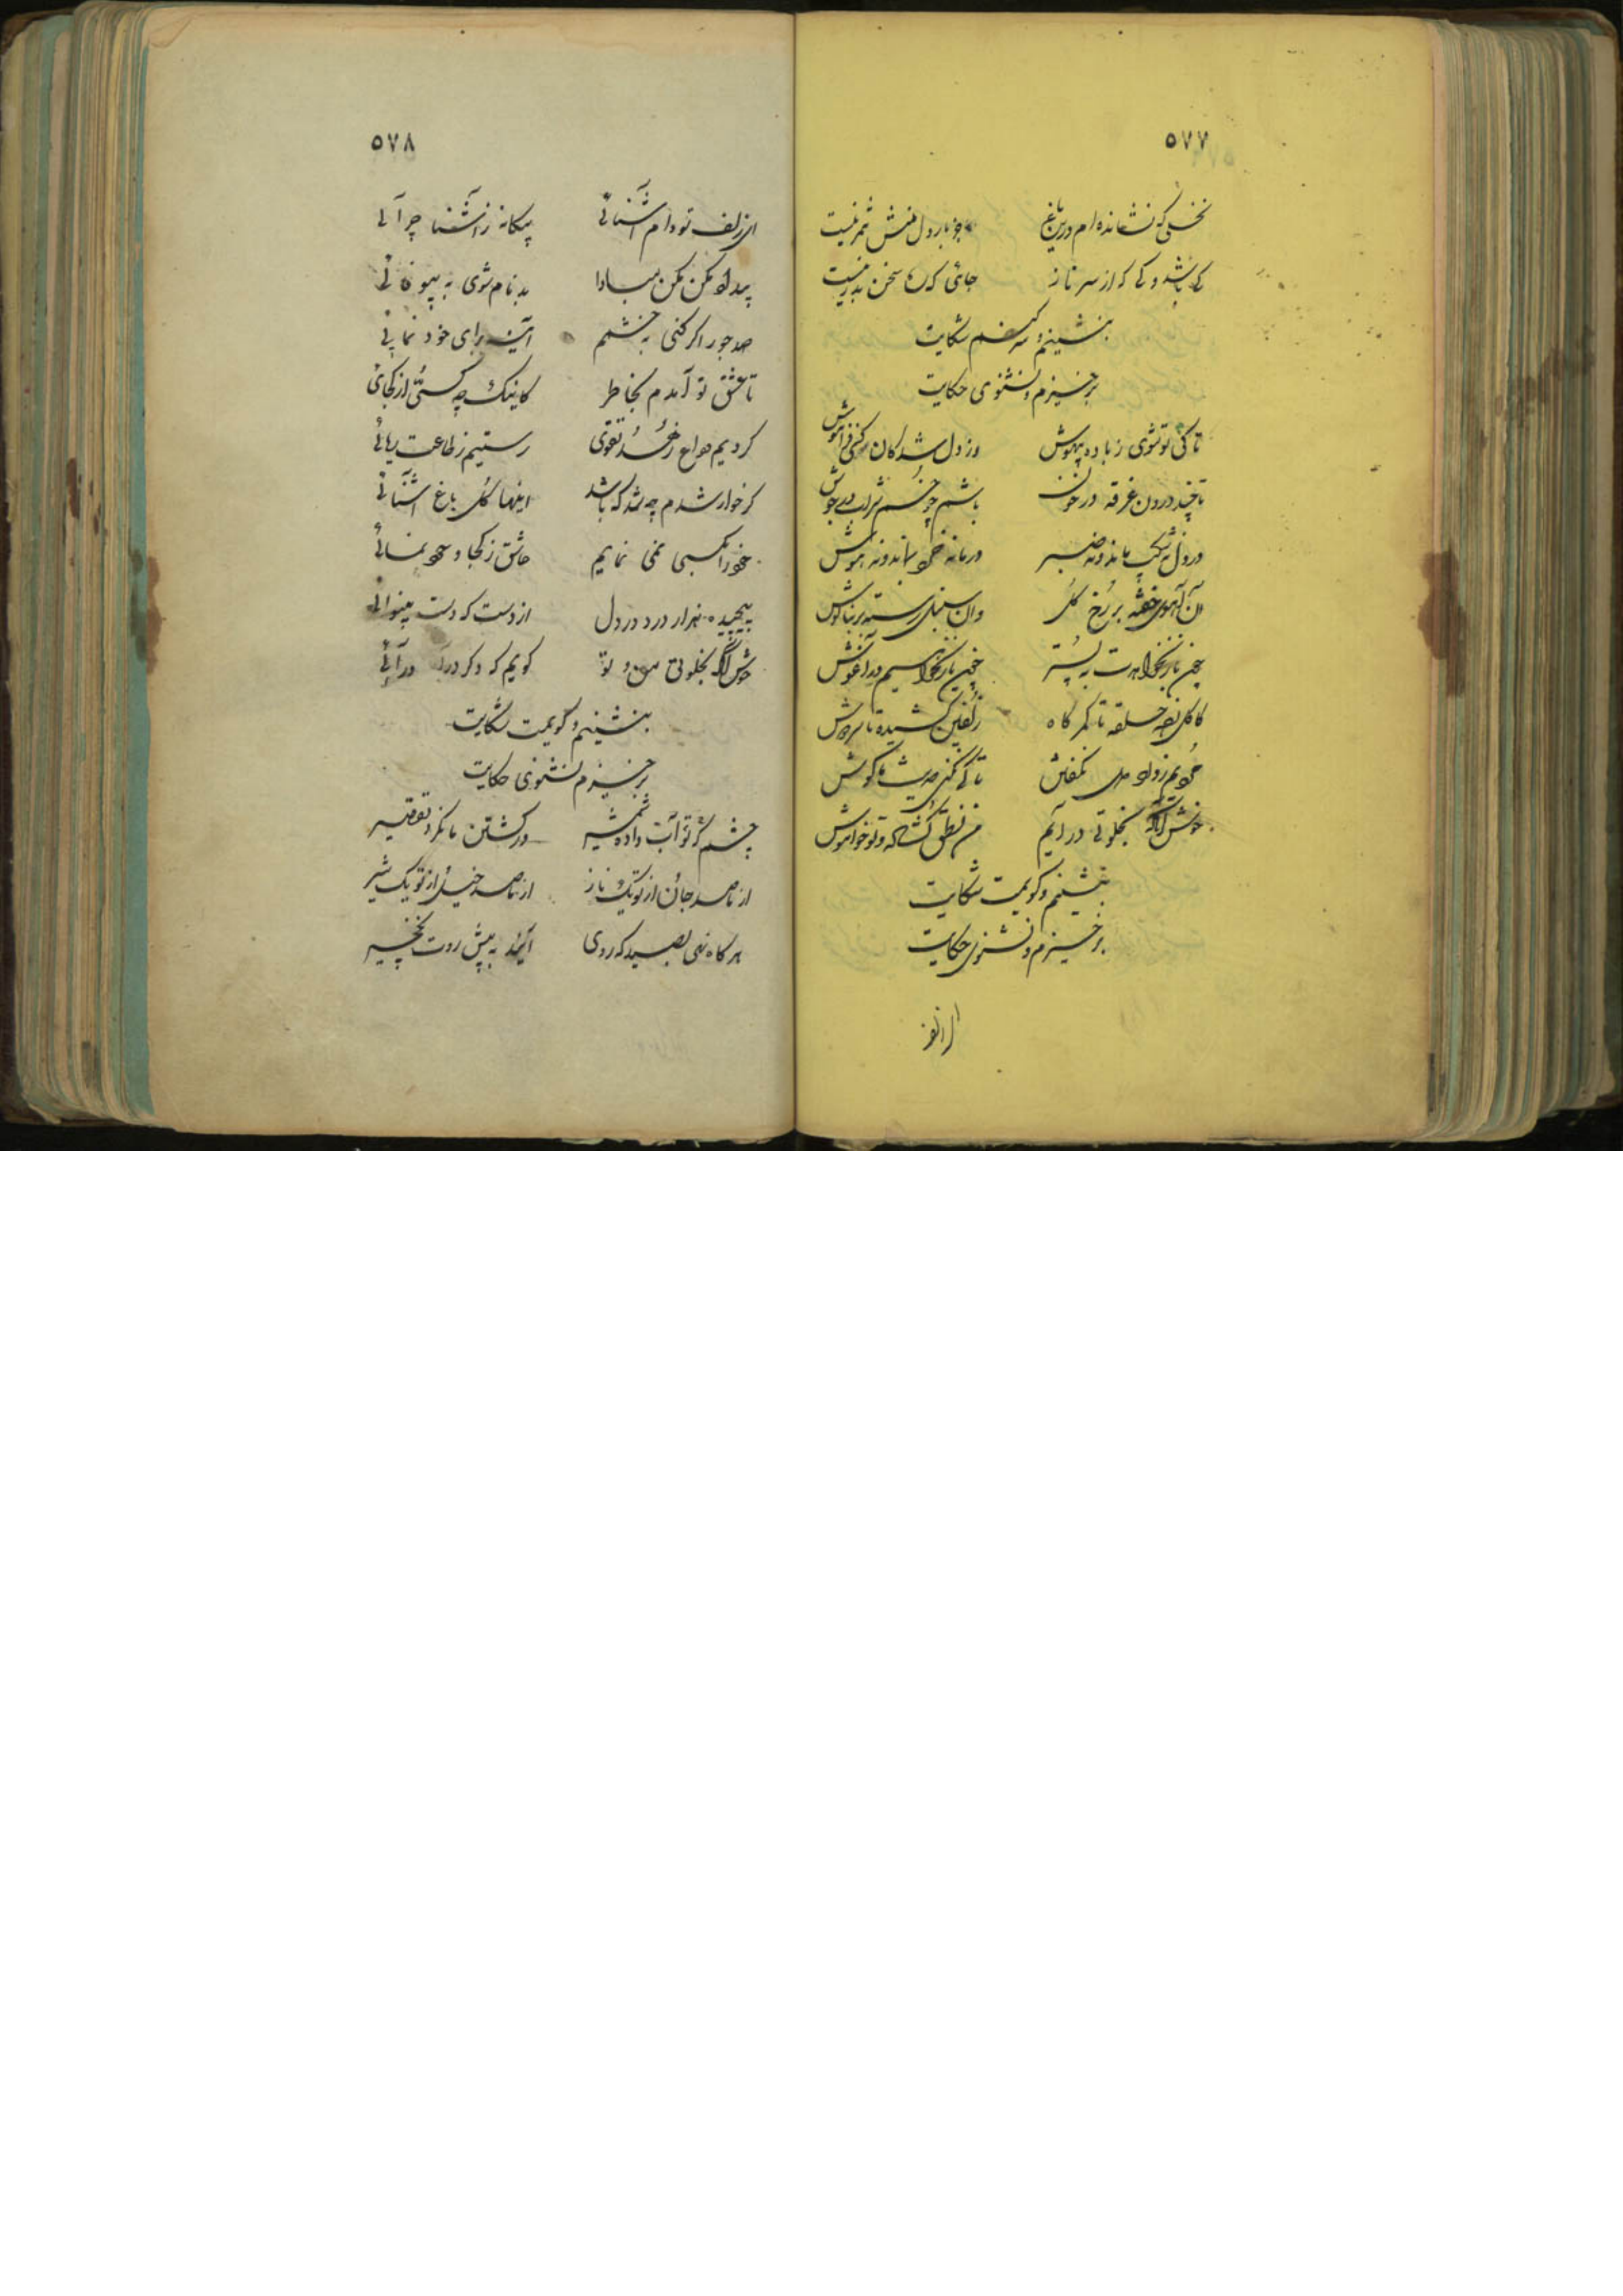 ٥٧٧
نخلی که نشانده‌ام درین باغ جز بار دل منش ثمر نیست
کی باشد و کی که از سر ناز جائی که سخن بدر نیست
بنشینم و سر کنم شکایت
برخیزم و نشنوی حکایت
تا کی تو شوی ز باده بیهوش وز دل شدکان کنی فراموش
تا چند درون غرقه در خون باشم چو خم شراب در جوش
در دل نه شکیب ماند و نه صبر در مانده نه هوش
آن آهوی خفته بر رخ گل وان سنبل رسته بر بناگوش
به بستر در آغوش
کاکل حلقه تا کمرگاه زلفین کشیده تا سر دوش
تا کی گوش
خوش آنکه بخلوتی در آیم من نطق گشاده و تو خاموش
بنشینم و گویمت شکایت
برخیزم و نشنوی حکایت
ای زلف
٥٧٨
ای زلف تو دام آشنائی بیکانه ز آشنا چرائی
بیداد مکن مکن مبادا بدنام شوی به بیوفائی
صد جور اکر کنی به خشمم آئین برای خود نمائی
تا عشق تو آمدم بخاطر کاینک چه کسی از کجائی
کردیم وداع زهد و تقوی رستیم ز طاعت ریائی
کر خوار شدم چه شد که باشد اینها کل باغ آشنائی
خود را بکسی نمی نمایم عاشق ز کجا و خودنمائی
پیچیده هزار درد در دل از دست که دست بینوائی
خوش آنکه بخلوتی من و تو کویم که و کر در آئی
بنشینم و کویمت شکایت
برخیزم و نشنوی حکایت
چشم تو آب داده شمشیر در کشتن ما نکرد تقصیر
از ما صد جان از تو یک ناز از ما صد خیل از تو یک تیر
هر کاه نهی بصید که روی آید به پیش روت نخجیر